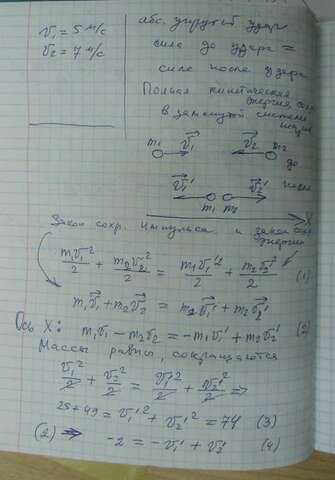 v₁ = 5 м/с
v₂ = 7 м/с
абс. упругий удар
сила до удара =
сила после удара
Полная кинетическая
энергия сохр.
в замкнутой системе
m₁ v⃗₁ v⃗₂ m₂
до
v⃗₁' v⃗₂' после
m₁ m₂
X
Закон сохр. импульса и закон сохр.
энергии
m₁v₁²/2 + m₂v₂²/2 = m₁v₁'²/2 + m₂v₂'²/2 (1)
m₁v⃗₁ + m₂v⃗₂ = m₁v⃗₁' + m₂v⃗₂'
Ось X: m₁v₁ - m₂v₂ = -m₁v₁' + m₂v₂' (2)
Массы равны, сокращаются
v₁²/2 + v₂²/2 = v₁'²/2 + v₂'²/2 ⇒
25 + 49 = v₁'² + v₂'² = 74 (3)
(2) ⇒ -2 = -v₁' + v₂' (4)